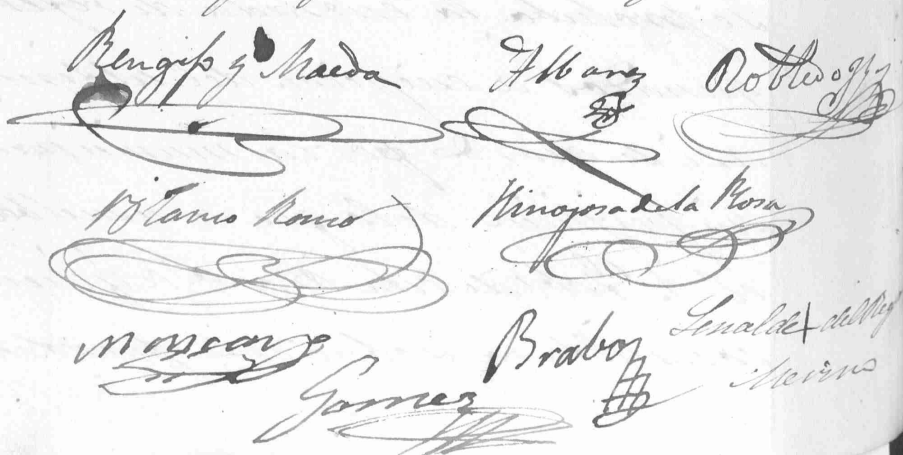 Rengifo y Maeda Albarez Robledo
Blanco Romo Hinojosa de la Rosa
Moyano Brabo Señal de + del Regr
Gomez Merino